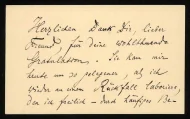 Herzlichen Dank Dir, lieber
Freund für deine wohlthuende
Gratulation. Sie kam mir
heute um so gelegener, als ich
wieder an einem Rückfall laborire,
den ich freilich durch häufiges Be-